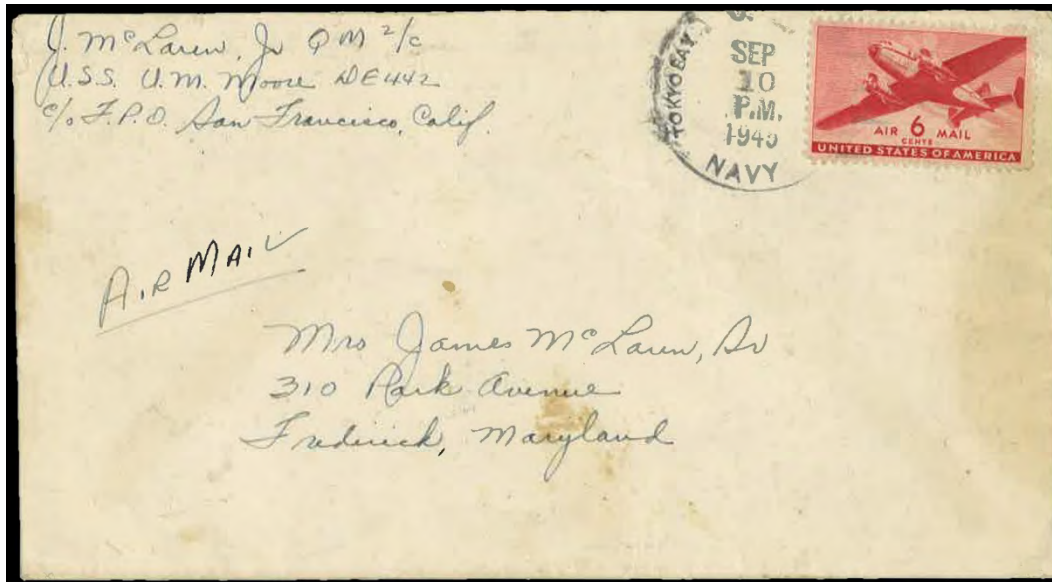 J. McLaren, Jr QM 2/c
U.S.S. U.M. Moore DE442
c/o F.P.O. San Francisco, Calif.
TOKYO BAY
SEP
10
P.M.
1945
NAVY
AIR 6 MAIL
CENTS
UNITED STATES OF AMERICA
AIR MAIL
Mrs James McLaren, Sr
310 Park Avenue
Frederick, Maryland